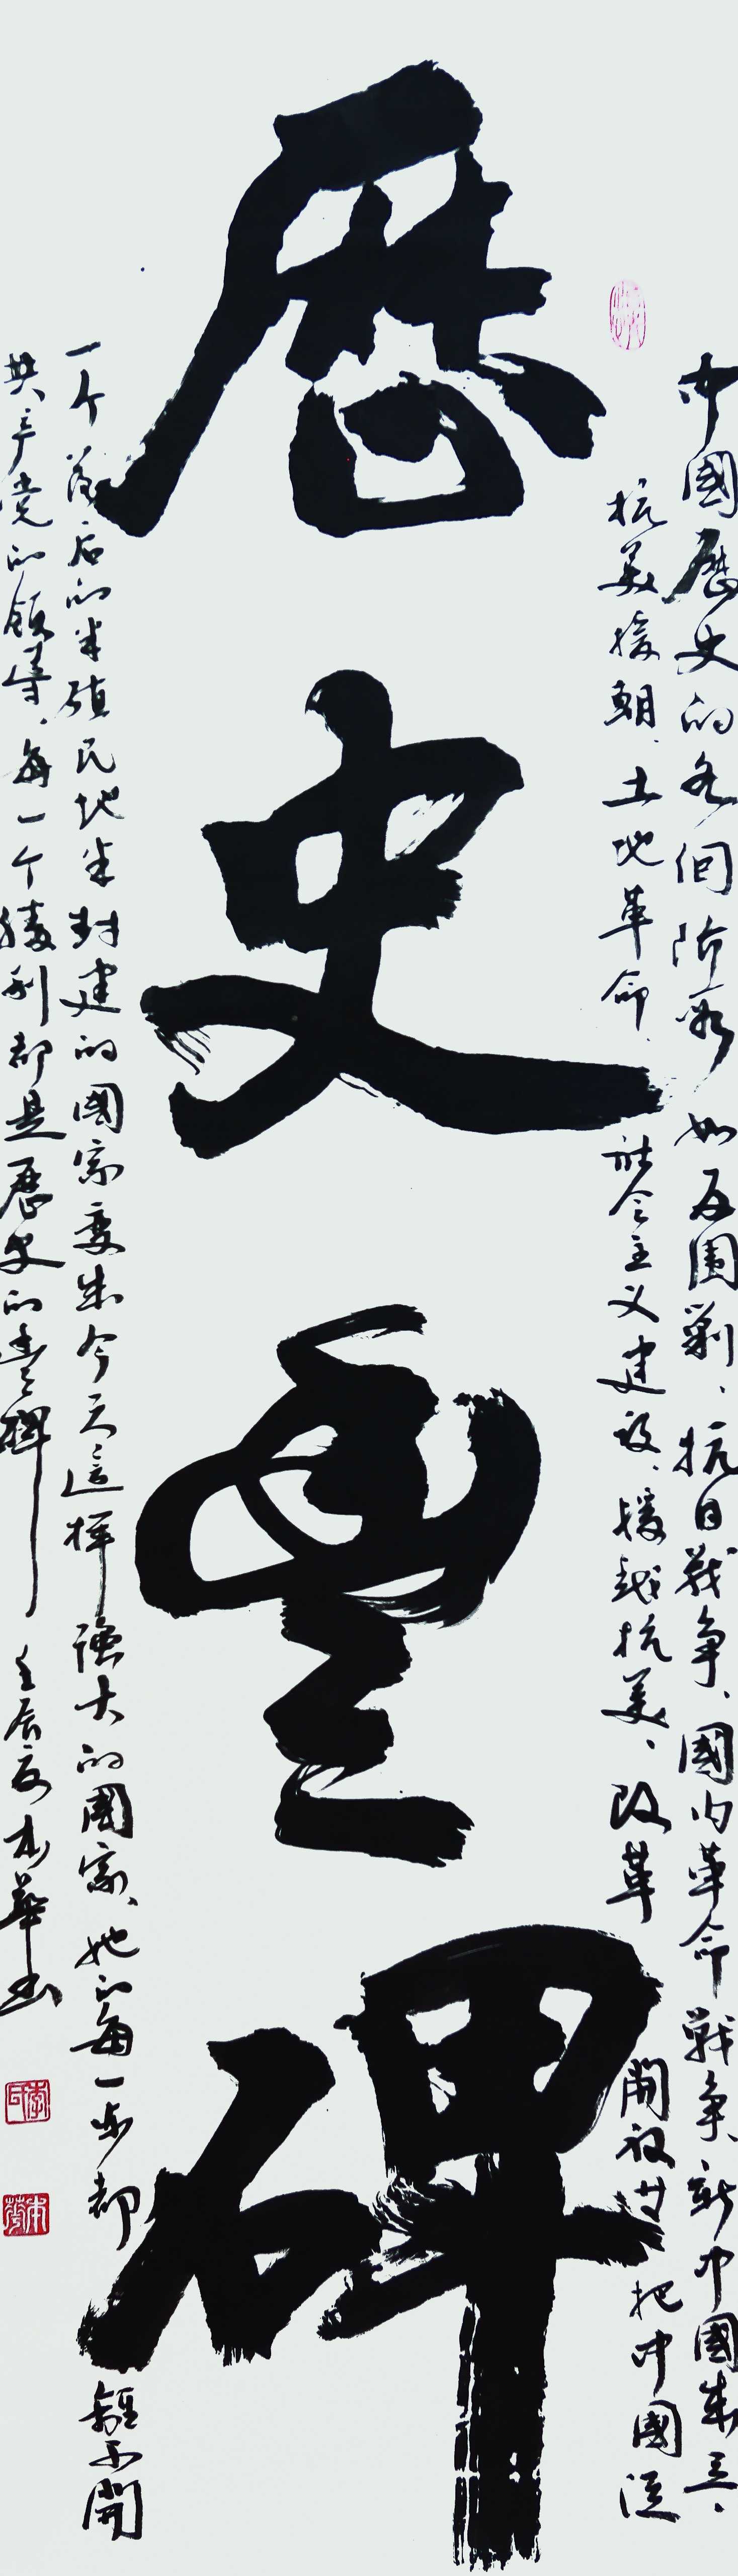 歷史豐碑
中國歷史的各個階段如反围剿、抗日戰争、國内革命戰争、新中國成立、
抗美援朝、土地革命、社会主义建设、援越抗美、改革開放等把中國從
一个落后的半殖民地半封建的國家变成今天這样强大的國家、她的每一步都離不開
共产党的領導、每一个勝利都是歷史的豐碑
李本華書